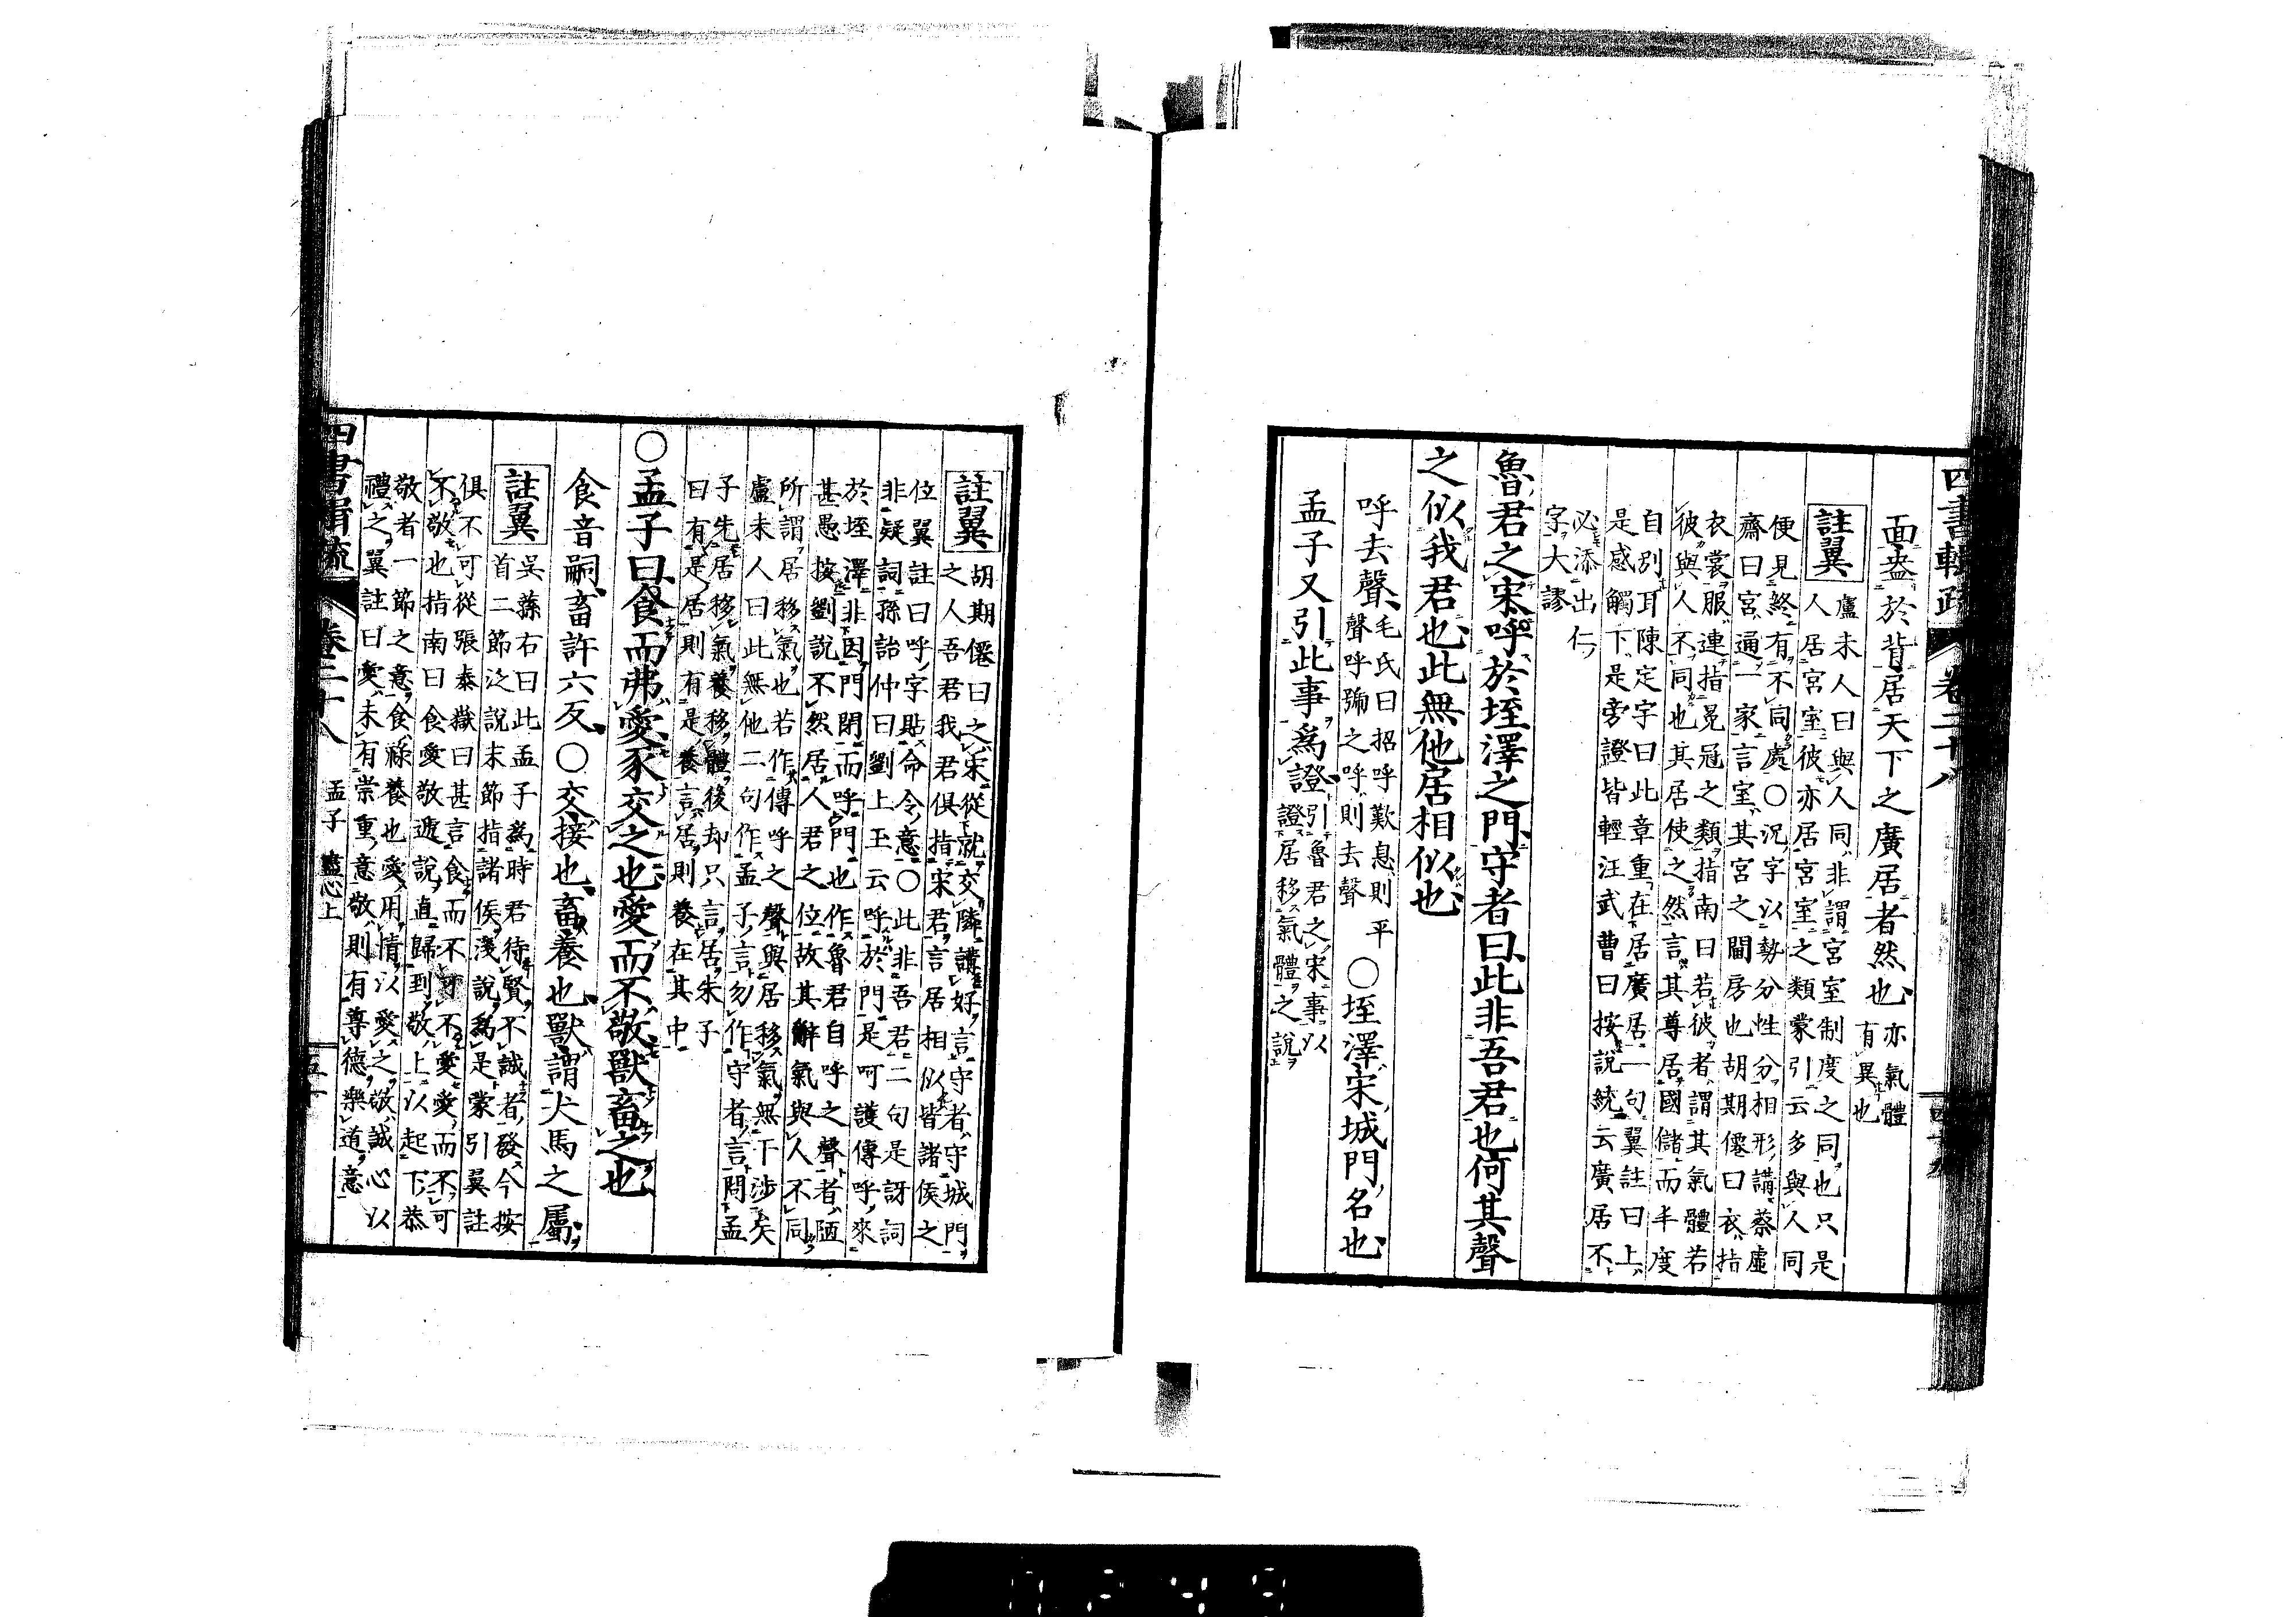 四書輯疏 卷二十八
面盎於背居天下之廣居者然也 亦氣體
有異也
註翼 盧未人曰與人同非謂宮室制度之同也只是
人居宮室彼亦居宮室之類蒙引云多與人同
便見終有不同處○況字以勢分性分相形講蔡虛
齋曰宮通一家言室其宮之閫房也胡期僊曰衣指
衣裳服連指冕冠之類指南曰若彼者謂其氣體若
彼與人不同也其居使之然言其尊居國儲而半度
自別耳陳定宇曰此章重在居廣居一句翼註曰上
是感觸下是旁證皆輕汪武曹曰按說統云廣居不
必添出仁
字大謬
魯君之宋呼於垤澤之門守者曰此非吾君也何其聲
之似我君也此無他居相似也
呼去聲 毛氏曰招呼歎息則平
聲呼號之呼則去聲 ○垤澤宋城門名也
孟子又引此事爲證 引魯君之宋事以
證居移氣體之說
註翼 胡期僊曰之宋從就交隣講好言守者守城門
之人吾君我君俱指宋君言居相似皆諸侯之
位翼註曰呼字貼命令意○此非吾君二句是訝詞
非疑詞孫詒仲曰劉上玉云呼於門是呵護傳呼來
於垤澤非因門閉而呼門也作魯君自呼之聲者陋
甚愚按劉說不然居人君之位故其辭氣與人不同
所謂居移氣也若作傳呼之聲與居移氣無干涉矣
盧未人曰此無他二句作孟子言勿作守者言問孟
子先居移氣養移體後却只言居朱子
曰有是居則有是養言居則養在其中
○孟子曰食而弗愛豕交之也愛而不敬獸畜之也
食音嗣畜許六反○交接也畜養也獸謂犬馬之屬
註翼 吳蓀右曰此孟子爲時君待賢不誠者發今按
首二節泛說末節指諸侯淺說爲是蒙引翼註
俱不可從張泰嶽曰甚言食而不可不愛愛而不可
不敬也指南曰食愛敬遞說直歸到敬上以起下恭
敬者一節之意食祿養也愛用情以愛之敬誠心以
禮之翼註曰愛未有崇重意敬則有尊德樂道意
四書輯疏 卷二十八 孟子 盡心上 五十